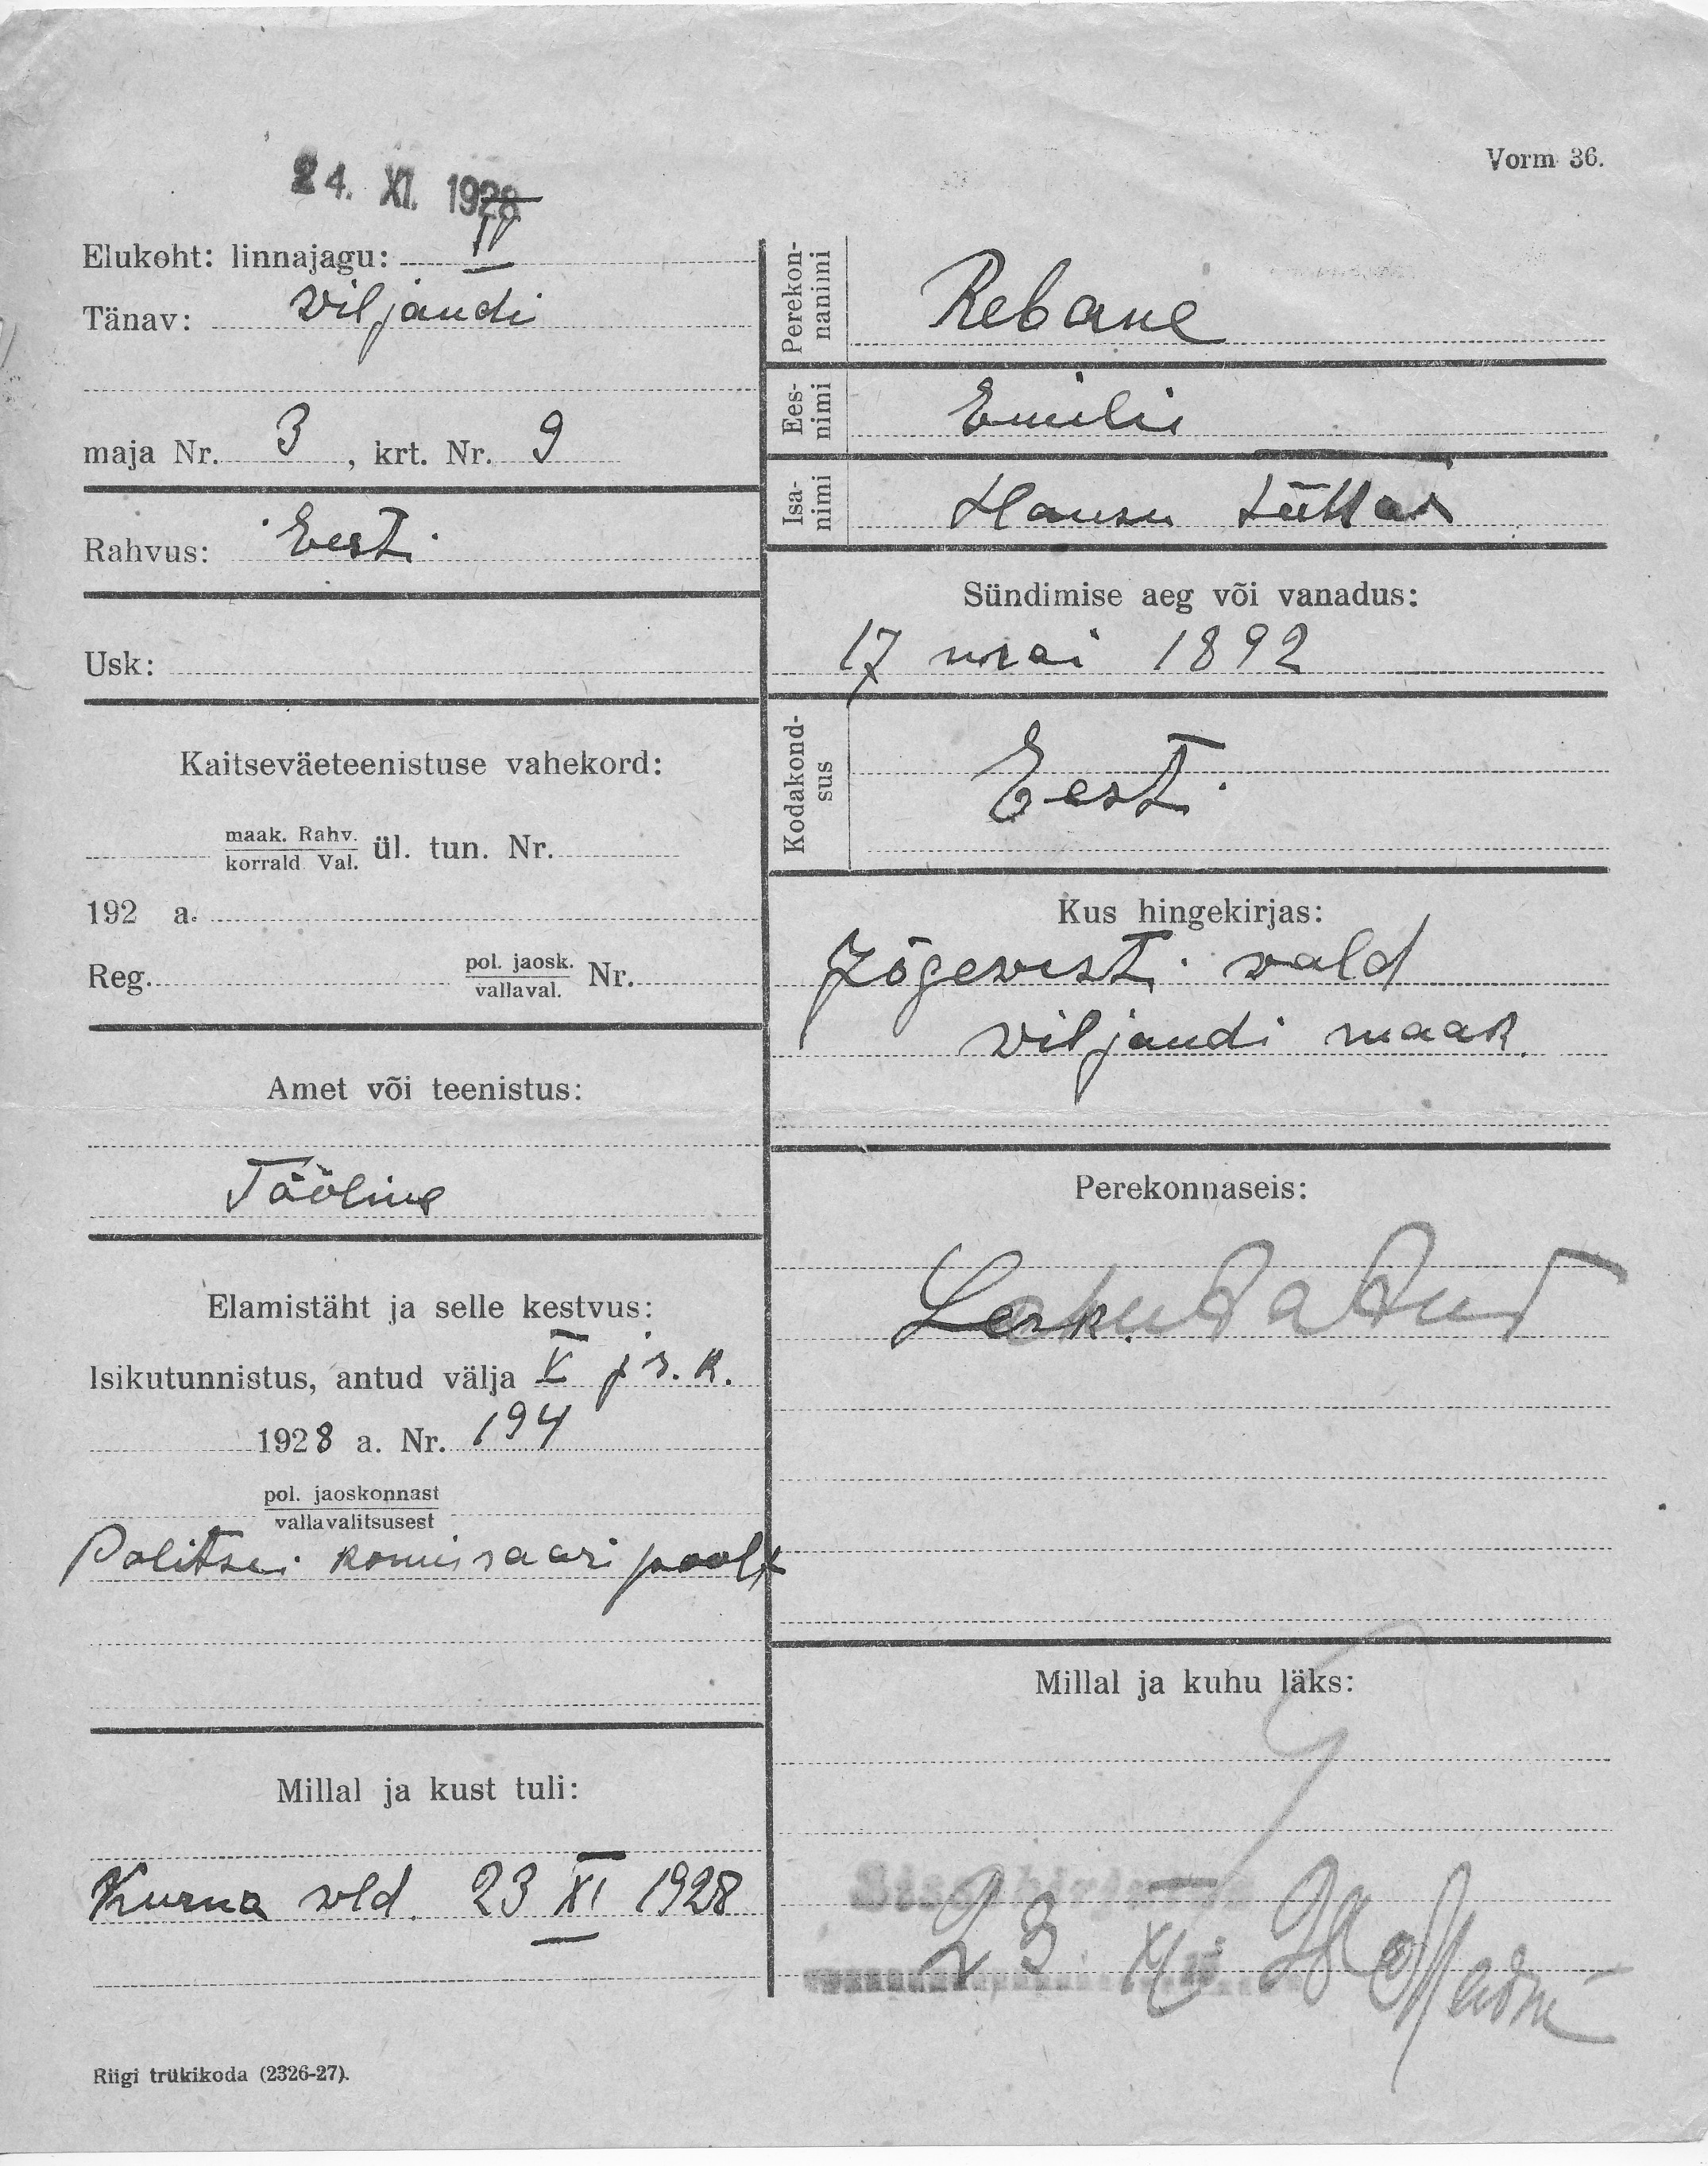 Vorm 36.
24. XI. 1928
Elukoht: linnajagu: IV
Tänav: Viljandi
maja Nr. 3, krt. Nr. 9
Rahvus: Eesti
Usk:
Kaitseväeteenistuse vahekord:
maak. Rahv.
korrald. Val. ül. tun. Nr.
192 a.
Reg. pol. jaosk.
vallaval. Nr.
Amet või teenistus:
Tööline
Elamistäht ja selle kestvus:
Isikutunnistus, antud välja V js. k.
1928 a. Nr. 194
pol. jaoskonnast
vallavalitsusest
Politsei komisaari poolt
Millal ja kust tuli:
Kurna vld. 23 XI 1928
Riigi trükikoda (2326-27).
Perekon-
nanimi
Rebane
Ees-
nimi
Emilie
Isa-
nimi
Hansu tüttar
Sündimise aeg või vanadus:
17 mai 1892
Kodakond-
sus
Eesti
Kus hingekirjas:
Jõgevesti vald
Viljandi maak.
Perekonnaseis:
Lesk. Lahutatud
Millal ja kuhu läks:
23 XI 28